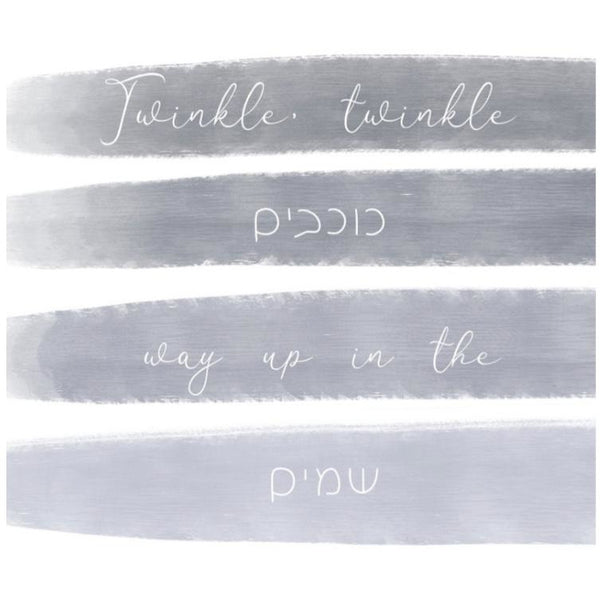 Twinkle, twinkle
כוכבים
way up in the
שמים